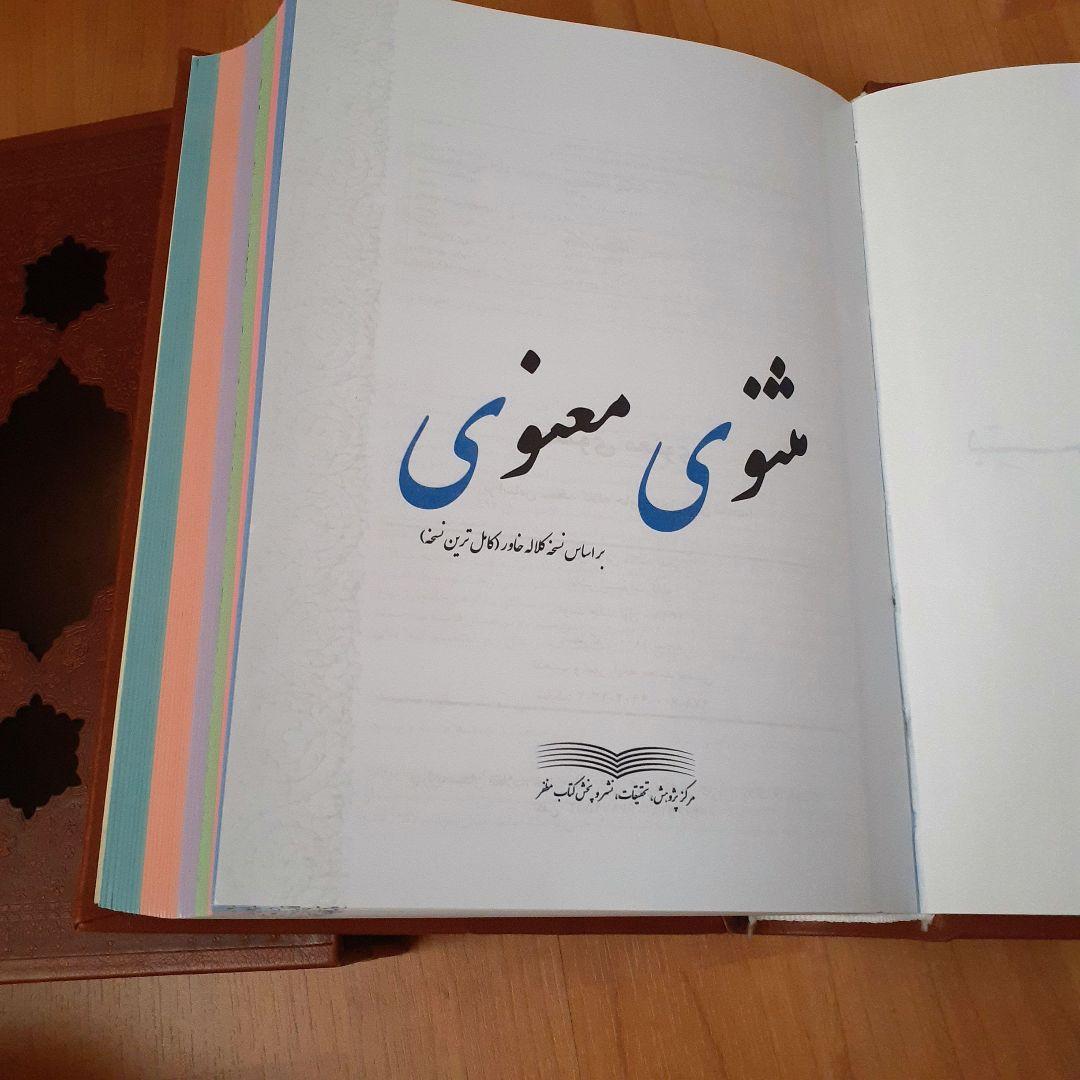 مثنوی معنوی
بر اساس نسخه کلاله خاور (کامل ترین نسخه)
مرکز پژوهش، تحقیقات، نشر و پخش کتاب مظفر